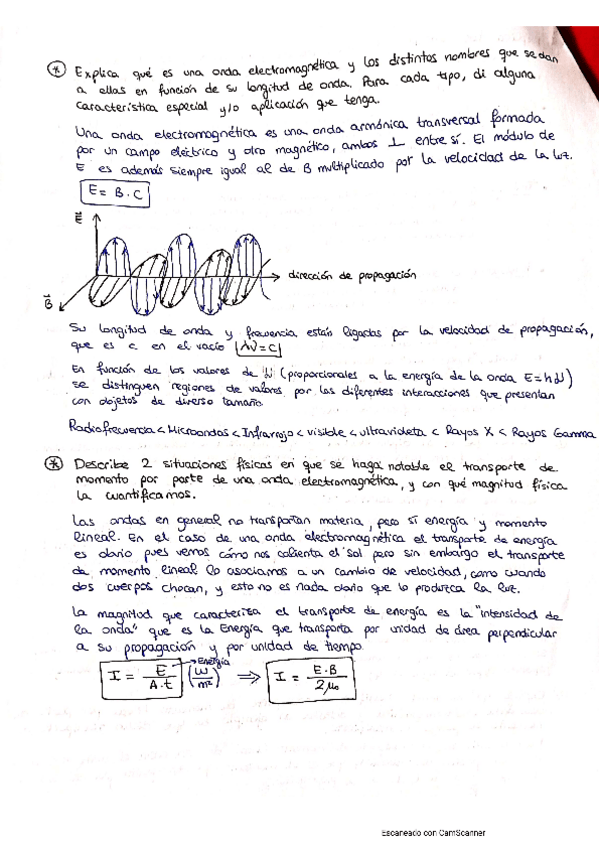 * Explica qué es una onda electromagnética y los distintos nombres que se dan
a ellas en función de su longitud de onda. Para cada tipo, di alguna
característica especial y/o aplicación que tenga.
Una onda electromagnética es una onda armónica transversal formada
por un campo eléctrico y otro magnético, ambos ⊥ entre sí. El módulo de
E es además siempre igual al de B multiplicado por la velocidad de la luz.
E = B · C
E⃗
dirección de propagación
B⃗
Su longitud de onda y frecuencia están ligadas por la velocidad de propagación,
que es c en el vacío λν = C
En función de los valores de ν (proporcionales a la energía de la onda E = hν)
se distinguen regiones de valores por las diferentes interacciones que presentan
con objetos de diverso tamaño.
Radiofrecuencia < Microondas < Infrarrojo < visible < ultravioleta < Rayos X < Rayos Gamma
* Describe 2 situaciones físicas en que se haga notable el transporte de
momento por parte de una onda electromagnética, y con qué magnitud física
la cuantificamos.
Las ondas en general no transportan materia, pero sí energía y momento
lineal. En el caso de una onda electromagnética el transporte de energía
es obvio pues vemos cómo nos calienta el sol pero sin embargo el transporte
de momento lineal lo asociamos a un cambio de velocidad, como cuando
dos cuerpos chocan, y esto no es nada obvio que lo produzca la luz.
La magnitud que caracteriza el transporte de energía es la "intensidad de
la onda" que es la Energía que transporta por unidad de área perpendicular
a su propagación y por unidad de tiempo.
I = E / A·t → Energía (W/m²) ⇒ I = E·B / 2μ₀
Escaneado con CamScanner